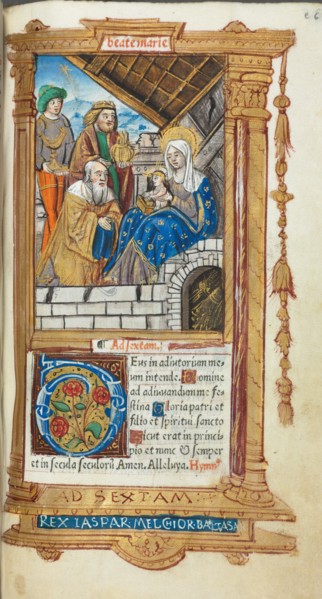 beate marie
Ad sextam.
Eus in adiutorium me
um intende. Domine
ad adiuvandum me fe
stina Gloria patri et
filio et spiritui sancto
Sicut erat in princi
pio et nunc & semper
et in secula seculorū Amen. Alleluya. Hymn⁹
AD SEXTAM
REX IASPAR MELCHIOR BALTASA